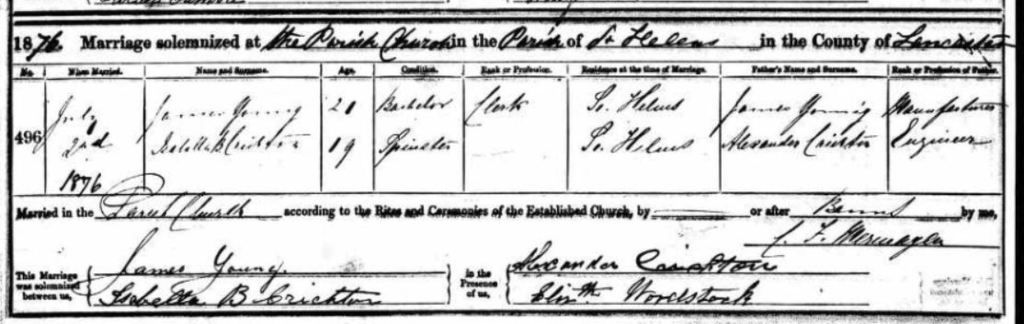 1876 Marriage solemnized at the Parish Church in the Parish of St Helens in the County of Lancaster
No. When Married. Name and Surname. Age. Condition. Rank or Profession. Residence at the time of Marriage. Father's Name and Surname. Rank or Profession of Father.
496 July 2nd 1876 James Young 21 Bachelor Clerk St. Helens James Young Manufacturer
Isabella B Crichton 19 Spinster St. Helens Alexander Crichton Engineer
Married in the Parish Church according to the Rites and Ceremonies of the Established Church, by or after Banns by me,
C. F. Mermagen
This Marriage was solemnized between us, James Young. Isabella B Crichton
in the Presence of us, Alexander Crichton Elizth Woodstock